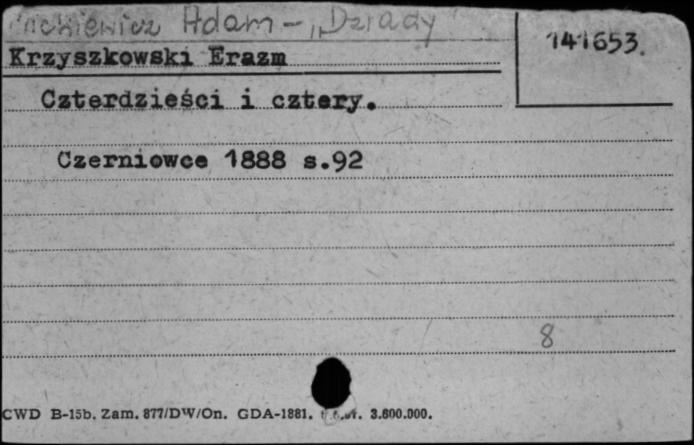 Mickiewicz Adam – „Dziady"
141653.
Krzyszkowski Erazm
Czterdzieści i cztery.
Czerniowce 1888 s.92
8
CWD B-15b. Zam. 877/DW/On. GDA-1881. 3.600.000.